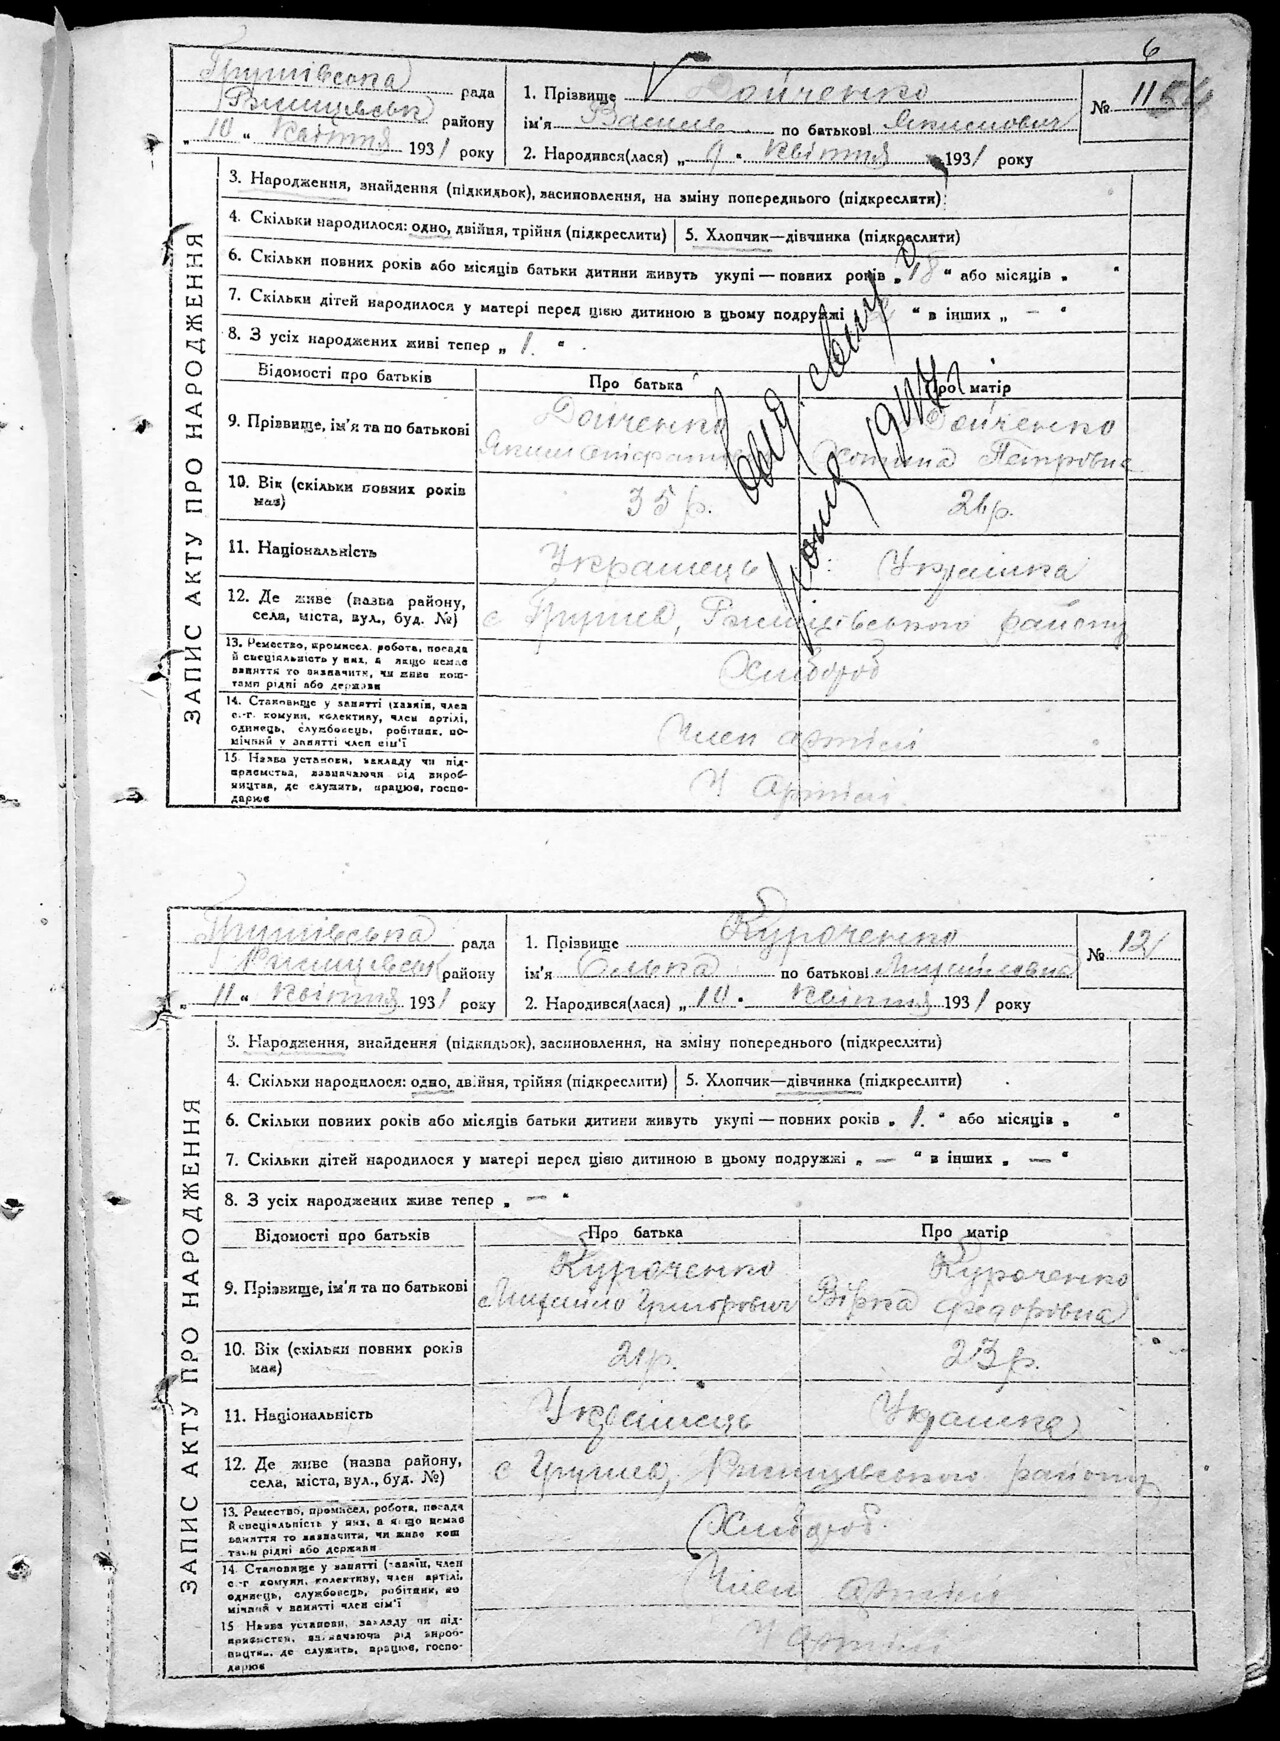 6
Грушівська рада
Ржищівськ району
„ 10 “ Квітня 1931 року
1. Прізвище V Дойченко
ім'я Василь по батькові Якимович
2. Народився(лася) „ 9 “ Квітня 1931 року
№ 11 54
ЗАПИС АКТУ ПРО НАРОДЖЕННЯ
3. Народження, знайдення (підкидьок), засиновлення, на зміну попереднього (підкреслити)
4. Скільки народилося: одно, двійня, трійня (підкреслити)
5. Хлопчик—дівчинка (підкреслити)
6. Скільки повних років або місяців батьки дитини живуть укупі — повних років „ 18 “ або місяців „ “
7. Скільки дітей народилося у матері перед цією дитиною в цьому подружжі “ в інших „ — “
8. З усіх народжених живі тепер „ 1. “
Відомості про батьків
Про батька
Про матір
9. Прізвище, ім'я та по батькові
Дойченко
Яким
Дойченко
Петрівна
10. Вік (скільки повних років має)
35 р.
26 р.
11. Національність
Украінець
Украінка
12. Де живе (назва району, села, міста, вул., буд. №)
с Грушів, Ржищівського району
13. Ремество, промисел, робота, посада й спеціяльність у них, а якщо немає заняття то визначити, чи живе коштами рідні або держави
Хлібороб
14. Становище у занятті (хазяїн, член с.-г. комуни, колективу, член артілі, одинець, службовець, робітник, помічний у занятті член сім'ї
Член артілі
15. Назва установи, закладу чи підприємства, зазначаючи рід виробництва, де служить, працює, господарює
У Артілі
1944 г
Грушівська рада
Ржищівськ району
„ 11 “ Квітня 1931 року
1. Прізвище Куроченко
ім'я Олька по батькові Михайловна
2. Народився(лася) „ 10 “ Квітня 1931 року
№ 12
ЗАПИС АКТУ ПРО НАРОДЖЕННЯ
3. Народження, знайдення (підкидьок), засиновлення, на зміну попереднього (підкреслити)
4. Скільки народилося: одно, двійня, трійня (підкреслити)
5. Хлопчик—дівчинка (підкреслити)
6. Скільки повних років або місяців батьки дитини живуть укупі — повних років „ 1. “ або місяців „ “
7. Скільки дітей народилося у матері перед цією дитиною в цьому подружжі „ — “ в інших „ — “
8. З усіх народжених живе тепер „ — “
Відомості про батьків
Про батька
Про матір
9. Прізвище, ім'я та по батькові
Куроченко
Михайло Григорович
Куроченко
Вірка Федорівна
10. Вік (скільки повних років має)
21 р.
23 р.
11. Національність
Украінець
Украінка
12. Де живе (назва району, села, міста, вул., буд. №)
с Грушів, Ржищівського району
13. Ремество, промисел, робота, посада й спеціяльність у них, а якщо немає заняття то зазначити, чи живе коштами рідні або держави
Хлібороб.
14. Становище у занятті (хазяїн, член с.-г. комуни, колективу, член артілі, одинець, службовець, робітник, помічний у занятті член сім'ї
Член артілі
15 Назва установи, закладу чи підприємства, зазначаючи рід виробництва, де служить, працює, господарює
У Артілі